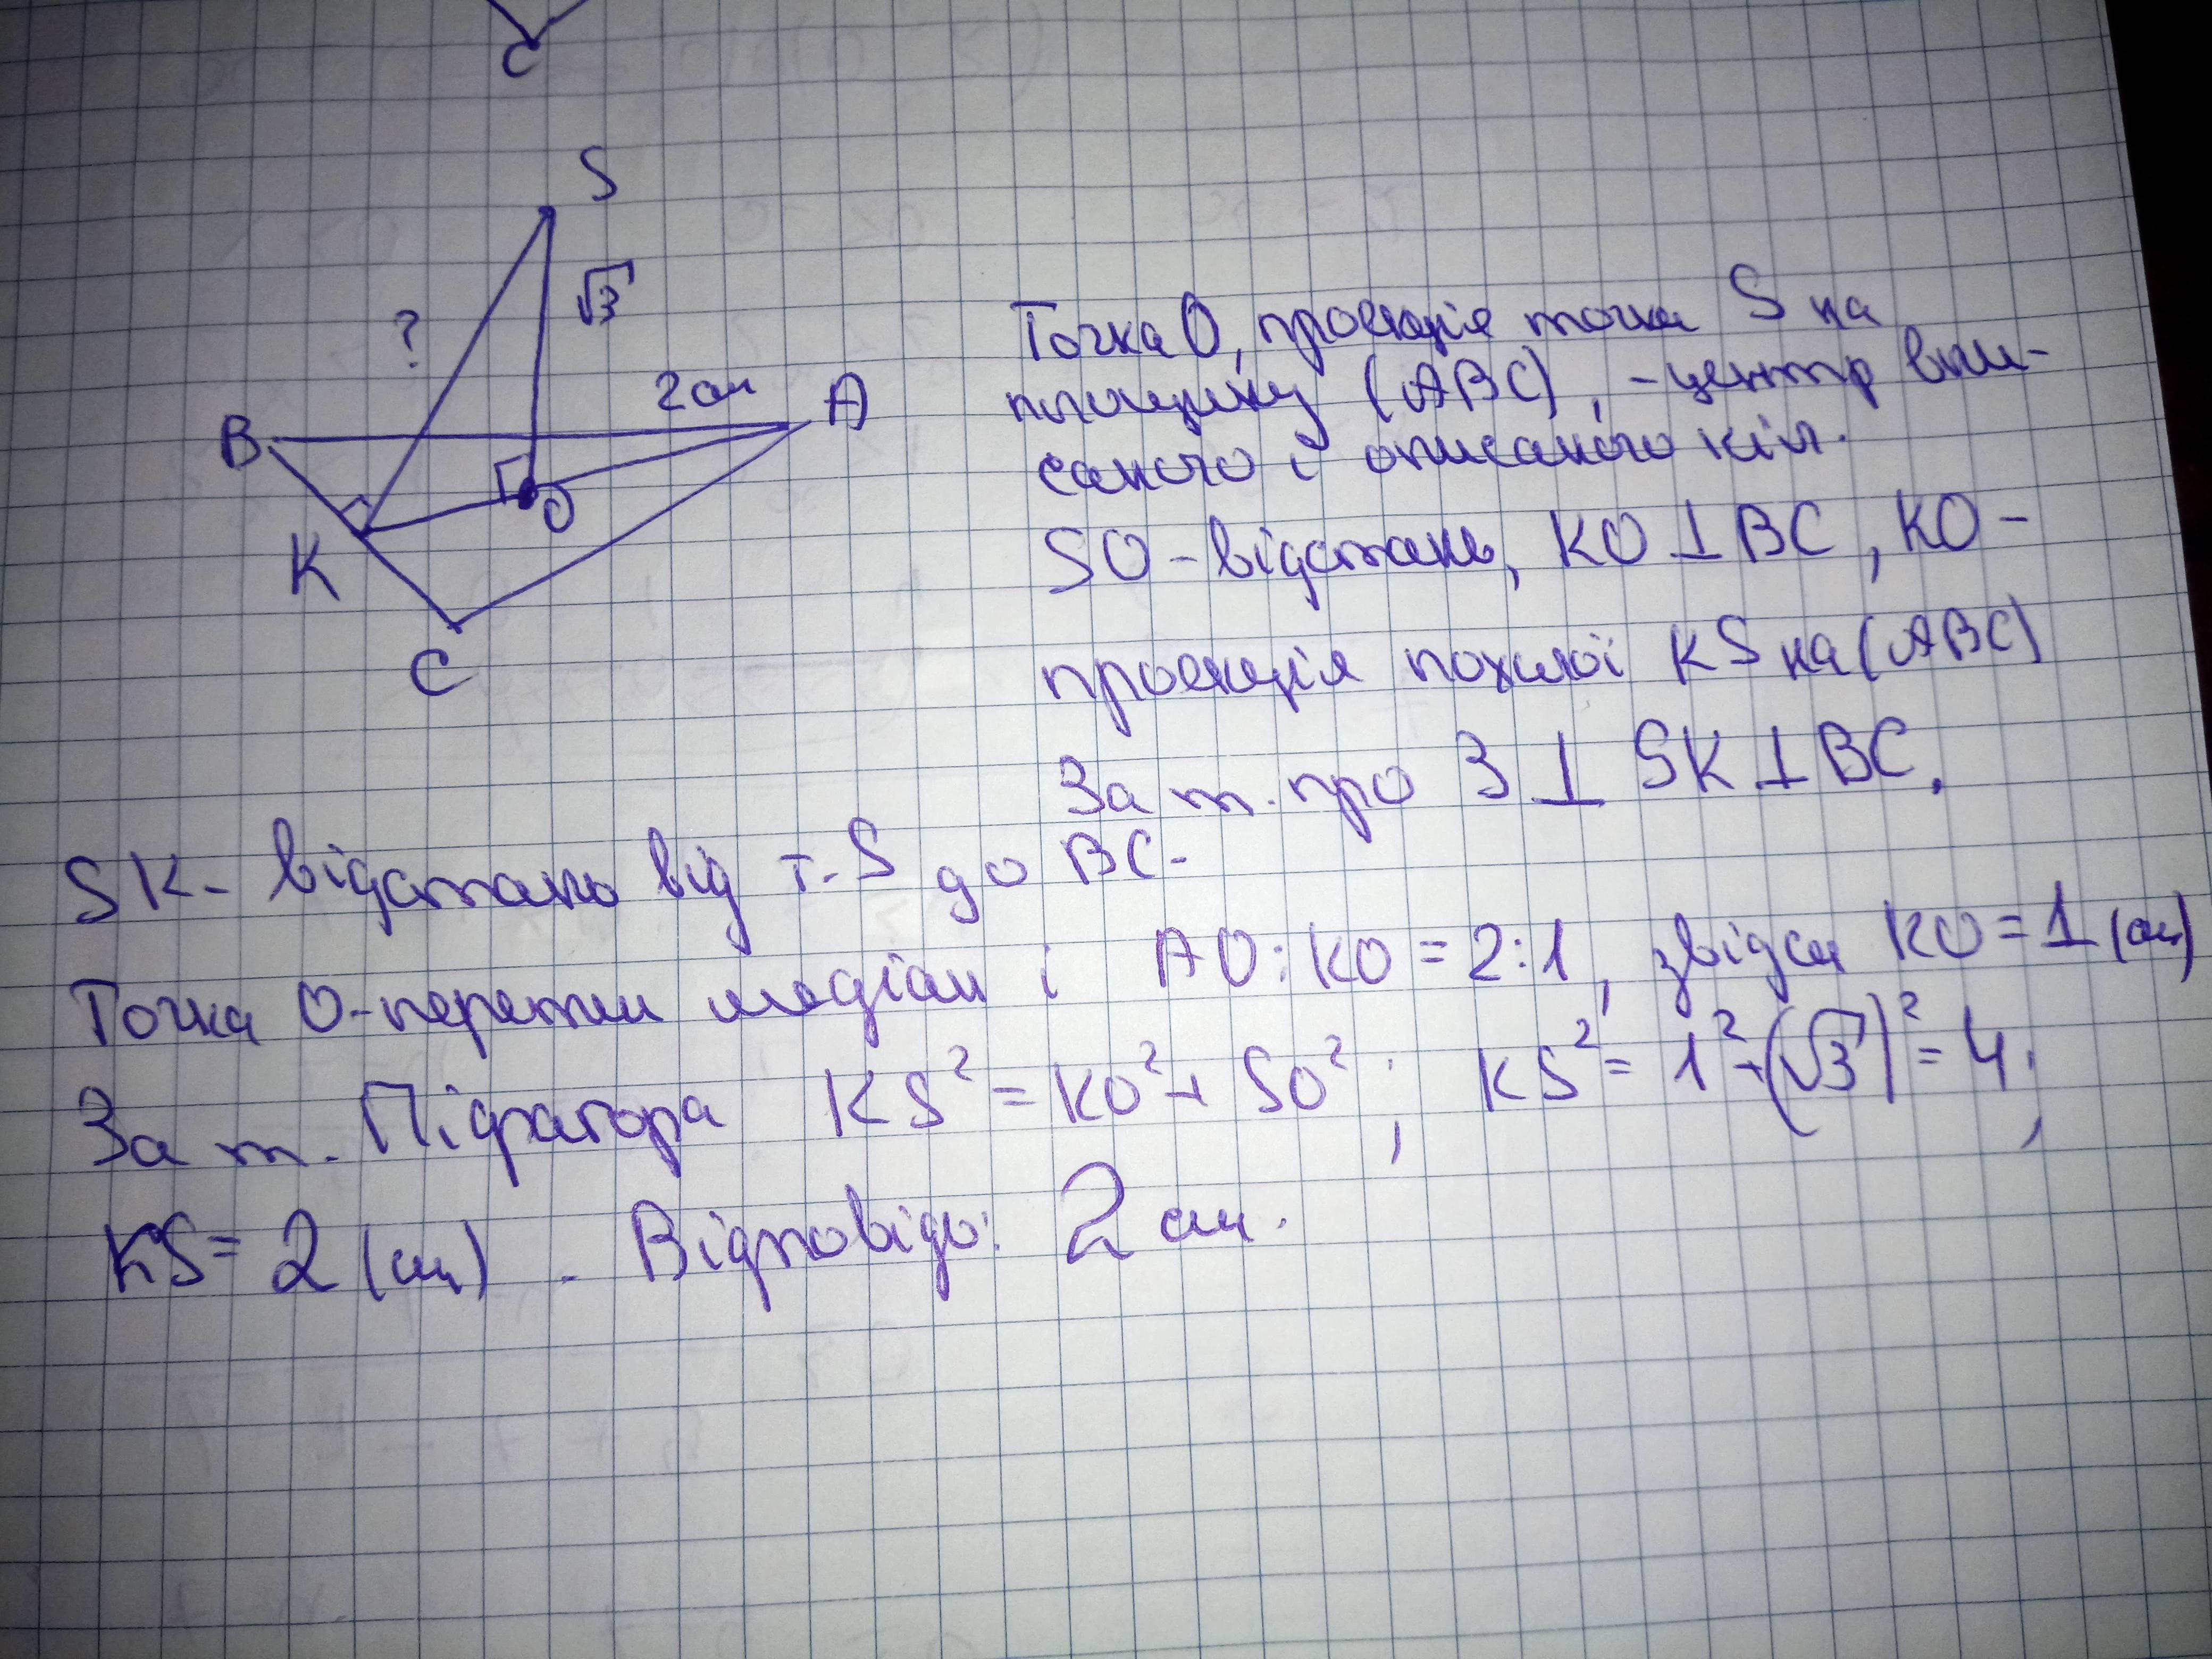 C
S
√3
?
2см
B
A
O
K
C
Точка O, проекція точки S на
площину (ABC), - центр впи-
саного і описаного кіл.
SO - відстань, KO ⊥ BC, KO -
проекція похилої KS на (ABC)
За т. про 3 ⊥ SK ⊥ BC.
SK - відстань від т. S до BC.
Точка O - перетин медіан і AO : KO = 2 : 1, звідси KO = 1 (см)
За т. Піфагора KS² = KO² + SO² ; KS² = 1² + (√3)² = 4 ;
KS = 2 (см). Відповідь: 2 см.